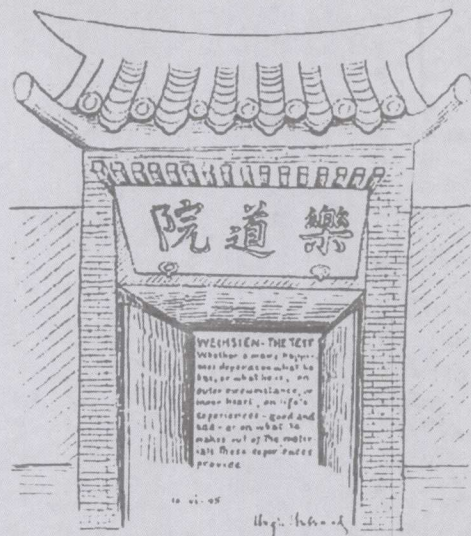 樂道院
WEIHSIEN - THE TEST
Whether a man's happi-
ness depends on what he
has, or what he is, on
outer circumstance, or
inner heart, on life's
experiences - good and
bad - or on what he
makes out of the mater-
ials those experiences
provide
10 · vi · 45